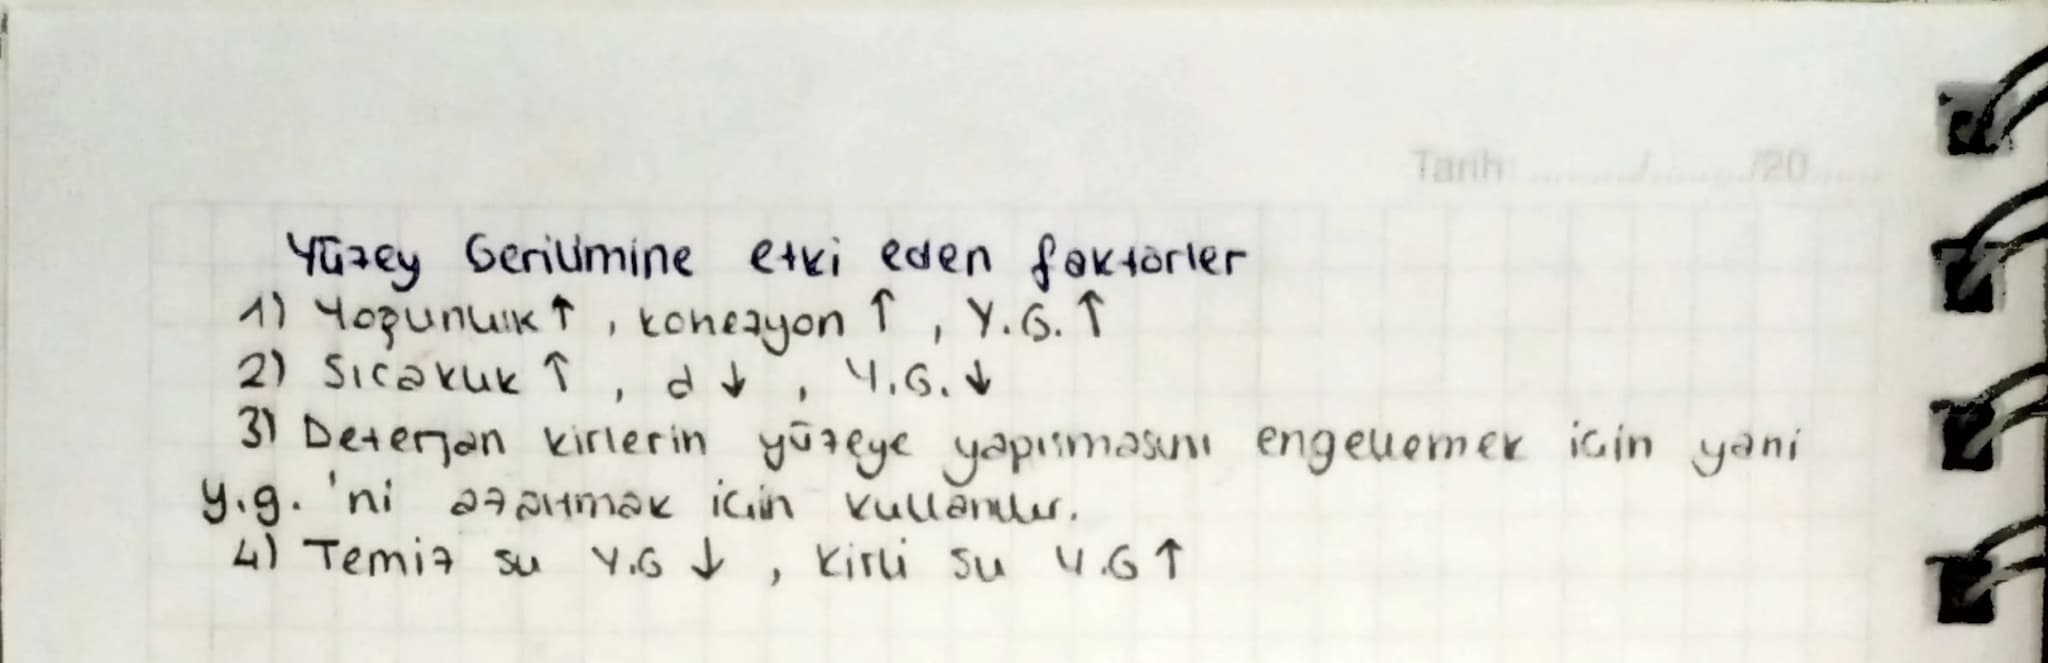 Tarih ......./......./20......
Yüzey Gerilimine etki eden faktörler
1) Yoğunluk ↑ , kohezyon ↑ , Y.G. ↑
2) Sıcaklık ↑ , d ↓ , Y.G. ↓
3) Deterjan kirlerin yüzeye yapışmasını engellemek için yani
y.g. 'ni azaltmak için kullanılır.
4) Temiz su Y.G ↓ , kirli su Y.G ↑